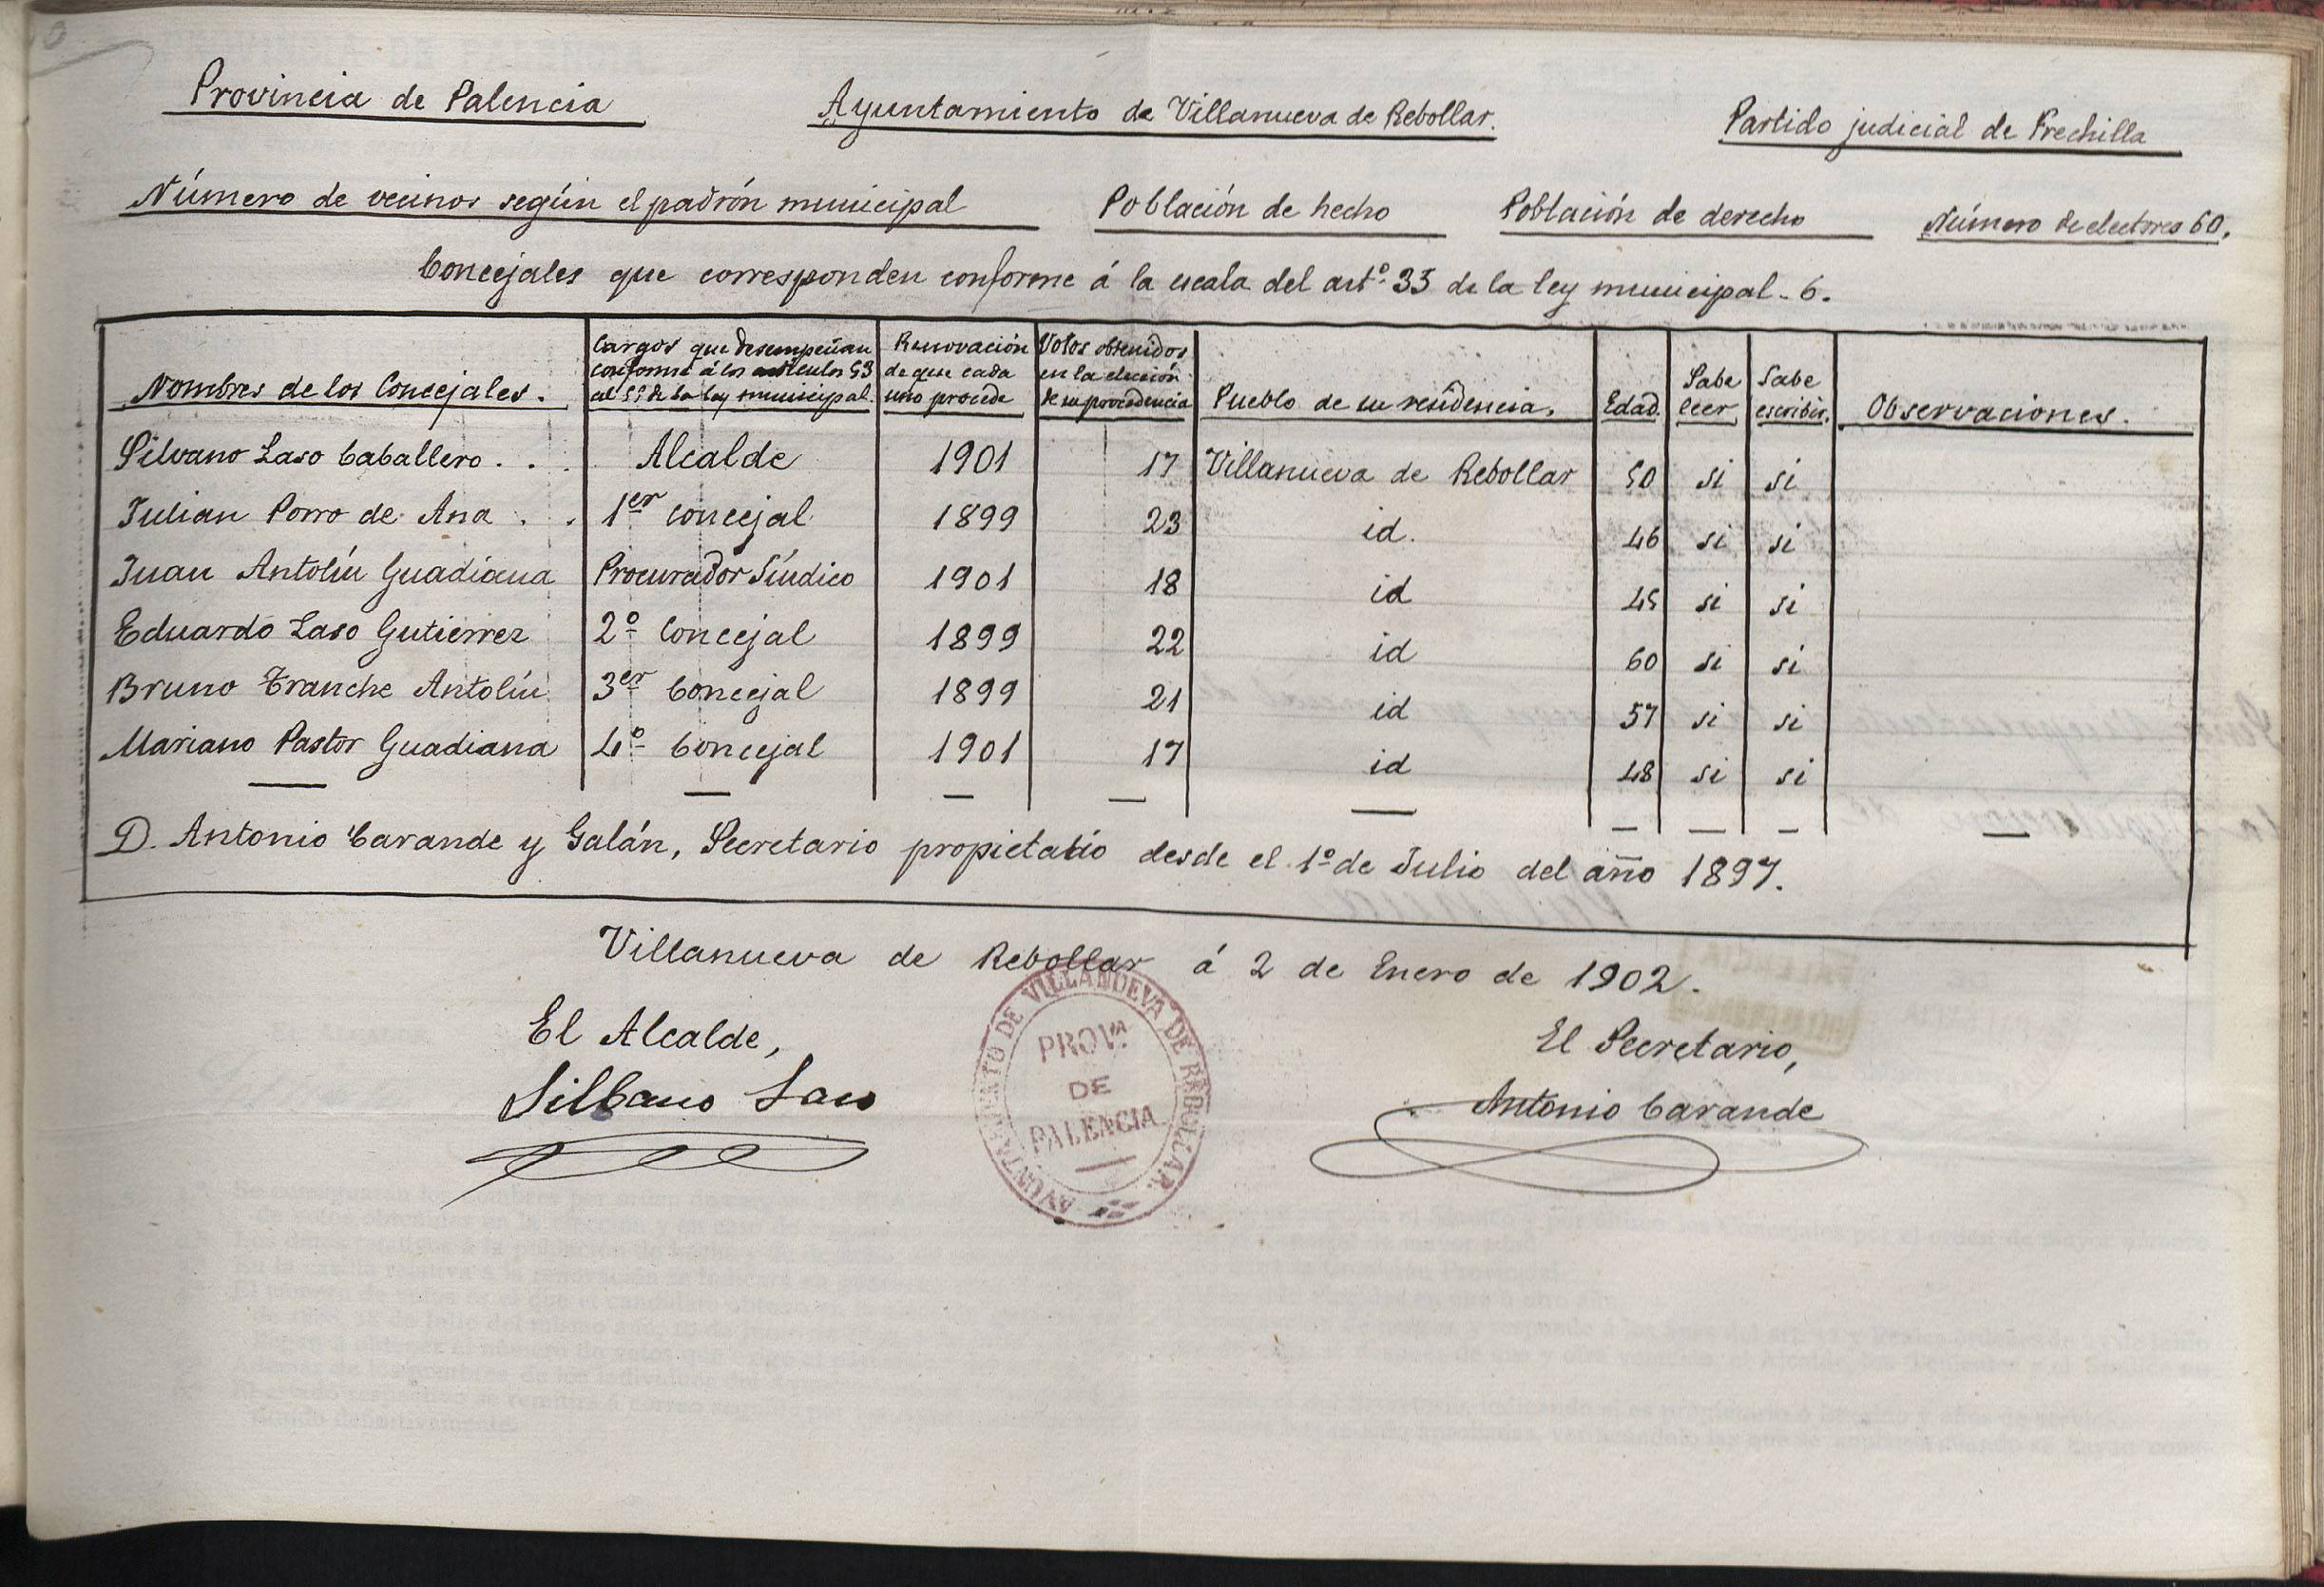 Provincia de Palencia Ayuntamiento de Villanueva de Rebollar. Partido judicial de Frechilla
Número de vecinos según el padrón municipal Población de hecho Población de derecho Número de electores 60.
Concejales que corresponden conforme á la escala del artº 35 de la ley municipal - 6.
Nombres de los Concejales. Cargos que desempeñan conforme á los artículos 53 al 55 de la ley municipal. Renovación de que cada uno procede Votos obtenidos en la elección de su procedencia Pueblo de su residencia. Edad. Sabe leer Sabe escribir. Observaciones.
Silvano Laso Caballero . . . Alcalde 1901 17 Villanueva de Rebollar 50 si si
Julian Porro de Ana . . 1er Concejal 1899 23 id. 46 si si
Juan Antolín Guadiana Procurador Síndico 1901 18 id 45 si si
Eduardo Laso Gutierrez 2º Concejal 1899 22 id 60 si si
Bruno Tranche Antolín 3er Concejal 1899 21 id 57 si si
Mariano Pastor Guadiana 4º Concejal 1901 17 id 48 si si
D. Antonio Carande y Galán, Secretario propietario desde el 1º de Julio del año 1897.
Villanueva de Rebollar á 2 de Enero de 1902.
El Alcalde,
Silbano Laso
AYUNTAMIENTO DE VILLANUEVA DE REBOLLAR.
PROVA.
DE
PALENCIA
El Secretario,
Antonio Carande